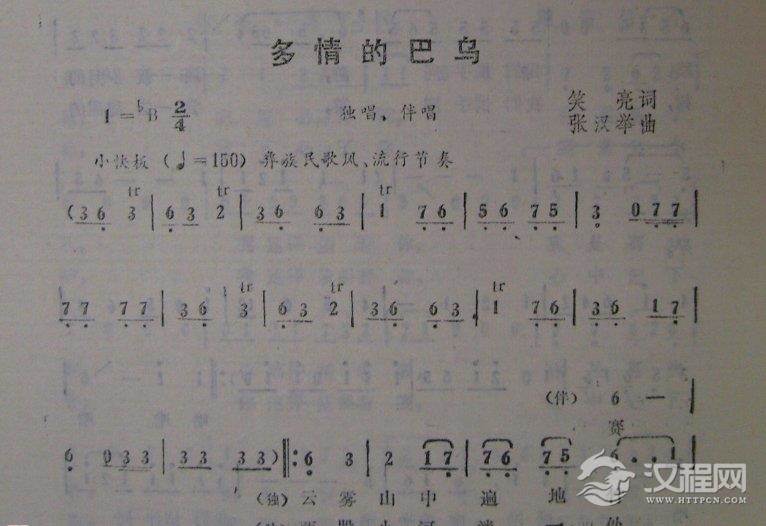 多情的巴乌
1=♭B 2/4 独唱、伴唱 笑亮词
张汉举曲
小快板（♩=150）彝族民歌风、流行节奏
tr tr tr
(36 3 | 63 2 | 36 63 | 1 76 | 56 75 | 3 077 |
tr tr tr
77 77 | 36 3 | 63 2 | 36 63 | 1 76 | 36 17 |
(伴) 6 — |
赛
6 033 | 33 33 | 33 33) ‖: 6 3 | 2 17 | 76 75 | 6 . . 1 |
(独) 云雾山中遍地
汉程网
WWW.HTTPCN.COM